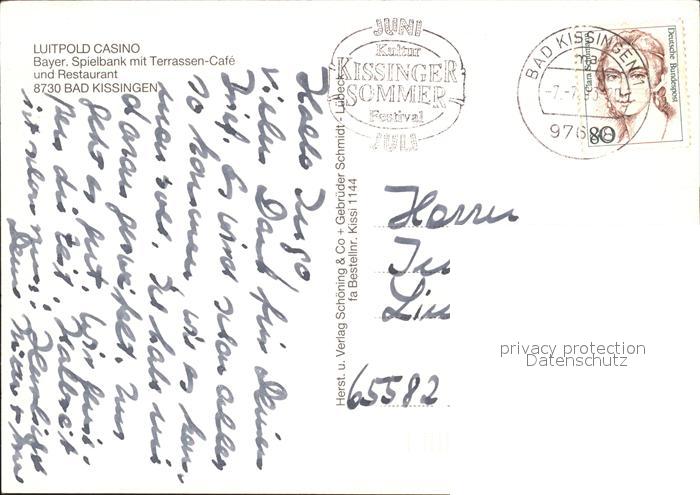 LUITPOLD CASINO
Bayer. Spielbank mit Terrassen-Café
und Restaurant
8730 BAD KISSINGEN
JUNI
Kultur
KISSINGER
SOMMER
Festival
JULI
BAD KISSINGEN 1
Clara Schumann
Deutsche Bundespost
80
Herst. u. Verlag Schöning & Co + Gebrüder Schmidt - Lübeck
fa Bestellnr. Kissi 1144
Hallo Ingo
vielen Dank für Deinen
Brief. Es wird schon alles
so kommen, wie es kom-
men soll. Ich hab nie
daran gezweifelt. Uns
geht es gut. Wir
die Zeit. Halbzeit
ist schon
Deine
Herrn
65582
privacy protection
Datenschutz